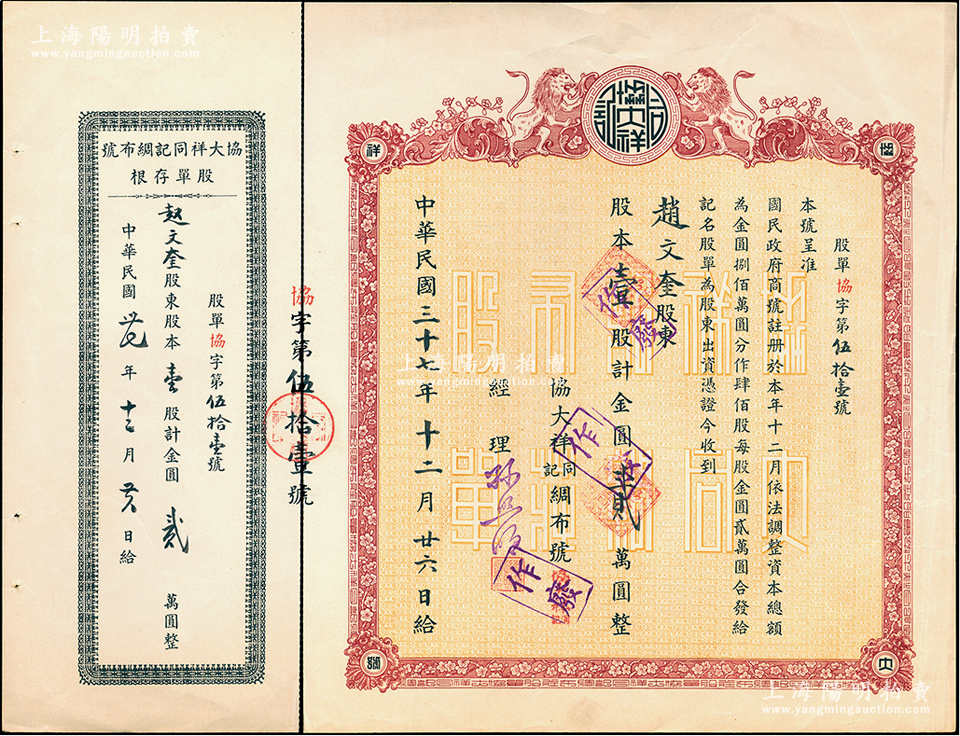 上海陽明拍賣
www.yangmingauction.com
協大祥同記
協
祥
大
號
股單協字第伍拾壹號
本號呈准
國民政府商號註册於本年十二月依法調整資本總額
為金圓捌佰萬圓分作肆佰股每股金圓貳萬圓合發給
記名股單為股東出資憑證今收到
趙文奎股東
股本壹股計金圓貳萬圓整
協大祥同記綢布號
經理
中華民國三十七年十二月廿六日給
作廢
作廢
作廢
協字第伍拾壹號
協大祥同記綢布號
股單存根
股單協字第伍拾壹號
趙文奎股東股本壹股計金圓貳萬圓整
中華民國卅七年十二月廿六日給
上海陽明拍賣
www.yangmingauction.com
上海陽明拍賣
www.yangmingauction.com